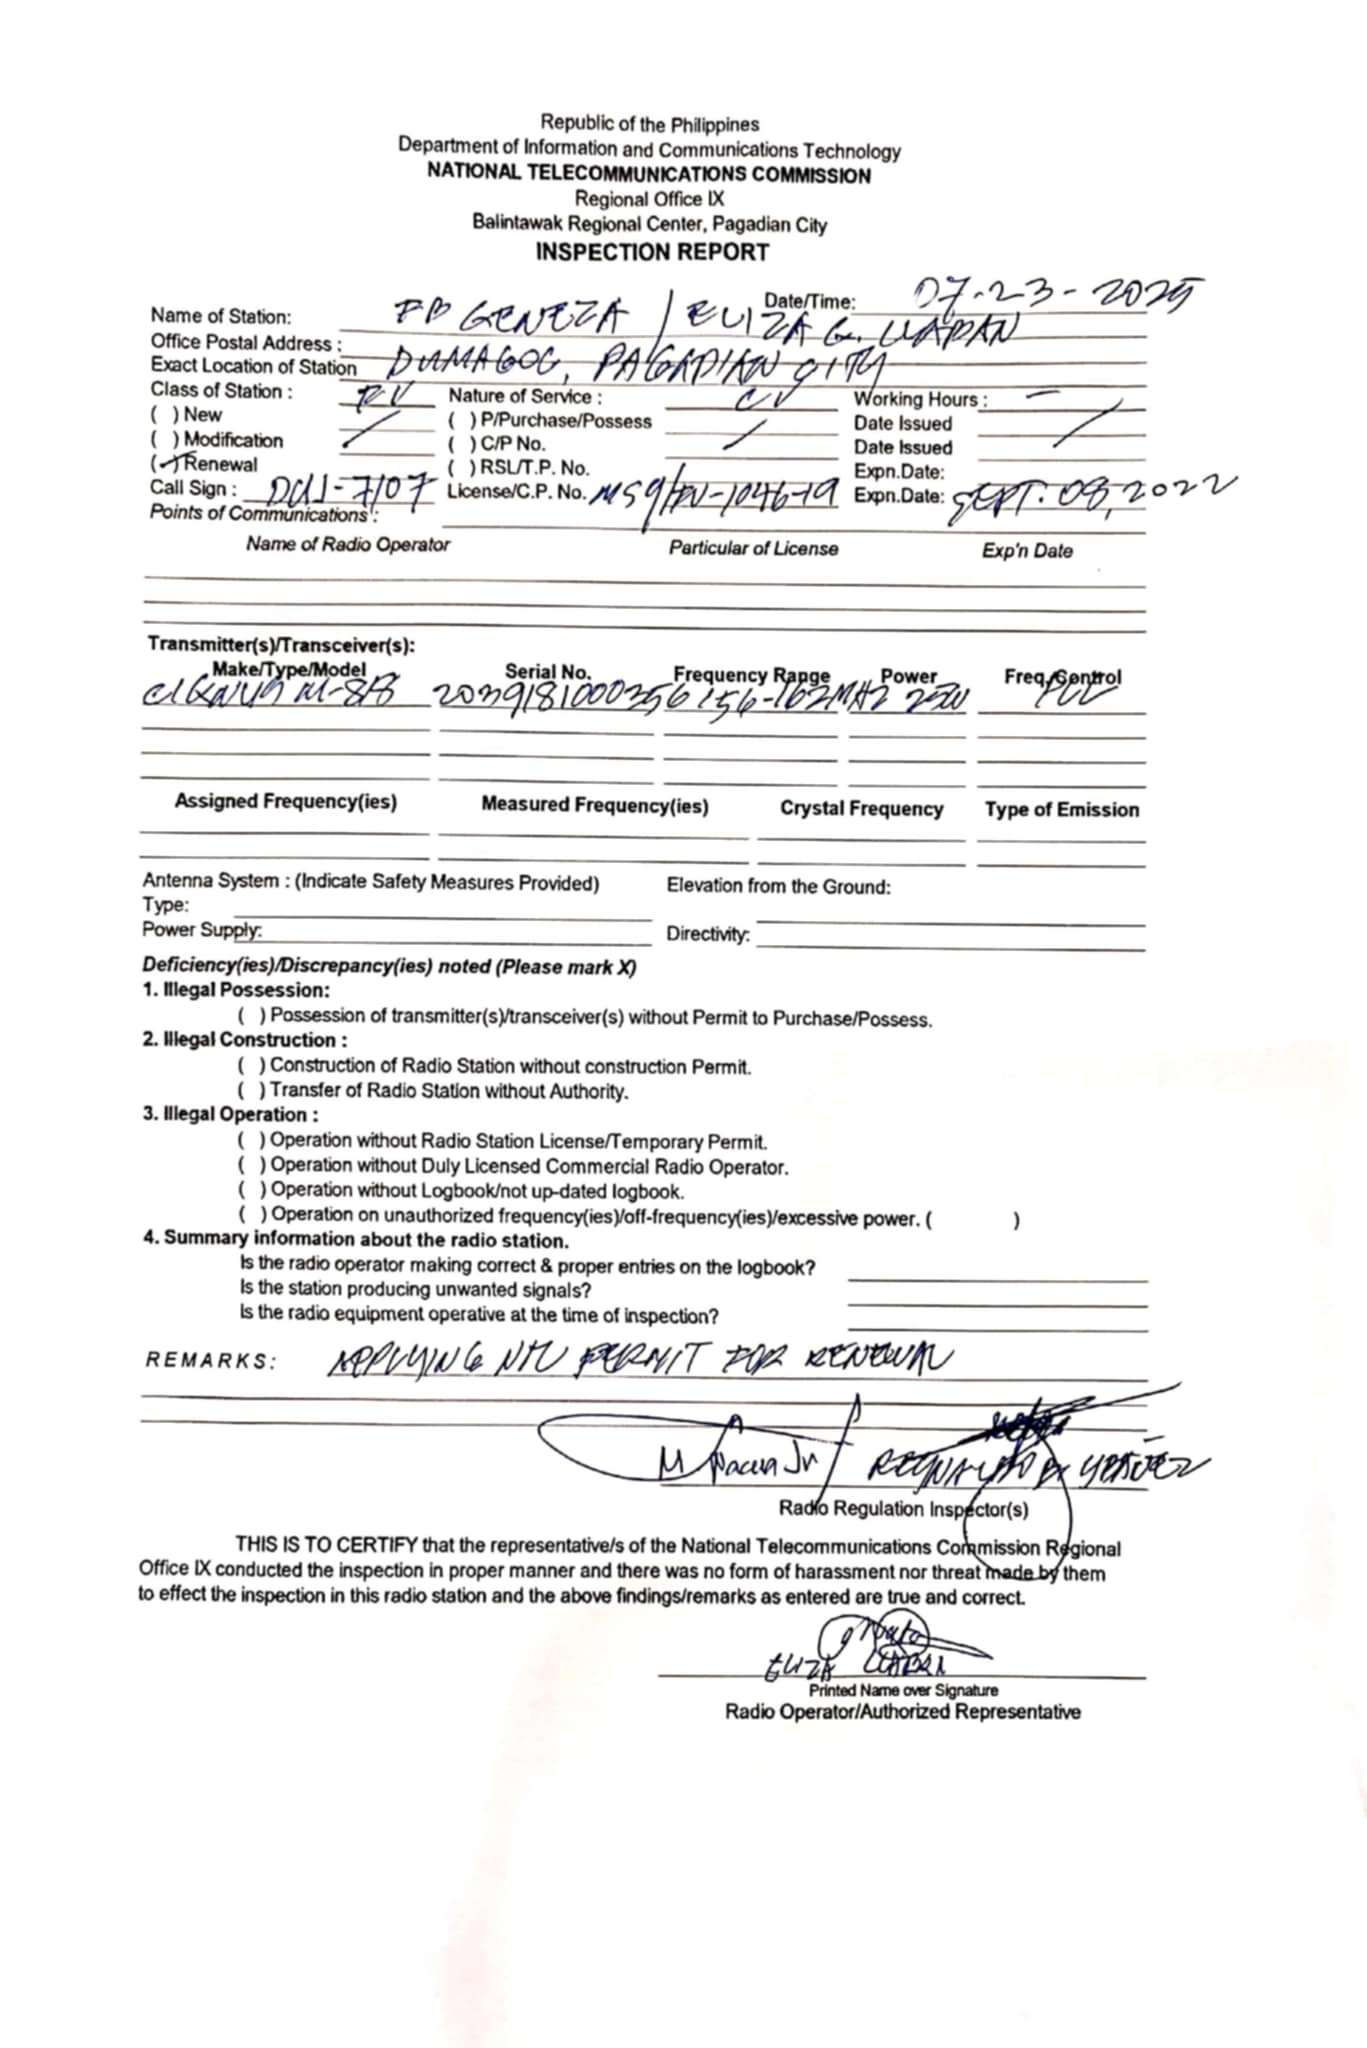 Republic of the Philippines
Department of Information and Communications Technology
NATIONAL TELECOMMUNICATIONS COMMISSION
Regional Office IX
Balintawak Regional Center, Pagadian City
INSPECTION REPORT
Date/Time: 07-23-2025
Name of Station: FB GENEZA / ELIZA G.
Office Postal Address :
Exact Location of Station DUMAGOC, PAGADIAN CITY
Class of Station : Nature of Service : CV Working Hours : -
( ) New ( ) P/Purchase/Possess Date Issued
( ) Modification / ( ) C/P No. / Date Issued /
(✓) Renewal ( ) RSL/T.P. No. Expn.Date:
Call Sign : DUJ-7107 License/C.P. No. -1046-19 Expn.Date: SEPT. 08, 2022
Points of Communications :
Name of Radio Operator Particular of License Exp'n Date
Transmitter(s)/Transceiver(s):
Make/Type/Model Serial No. Frequency Range Power Freq/Control
2039181000356 156-162MHZ 25W PLL
Assigned Frequency(ies) Measured Frequency(ies) Crystal Frequency Type of Emission
Antenna System : (Indicate Safety Measures Provided) Elevation from the Ground:
Type:
Power Supply: Directivity:
Deficiency(ies)/Discrepancy(ies) noted (Please mark X)
1. Illegal Possession:
( ) Possession of transmitter(s)/transceiver(s) without Permit to Purchase/Possess.
2. Illegal Construction :
( ) Construction of Radio Station without construction Permit.
( ) Transfer of Radio Station without Authority.
3. Illegal Operation :
( ) Operation without Radio Station License/Temporary Permit.
( ) Operation without Duly Licensed Commercial Radio Operator.
( ) Operation without Logbook/not up-dated logbook.
( ) Operation on unauthorized frequency(ies)/off-frequency(ies)/excessive power. ( )
4. Summary information about the radio station.
Is the radio operator making correct & proper entries on the logbook?
Is the station producing unwanted signals?
Is the radio equipment operative at the time of inspection?
REMARKS: APPLYING NTC PERMIT FOR RENEWAL
Radio Regulation Inspector(s)
THIS IS TO CERTIFY that the representative/s of the National Telecommunications Commission Regional
Office IX conducted the inspection in proper manner and there was no form of harassment nor threat made by them
to effect the inspection in this radio station and the above findings/remarks as entered are true and correct.
ELIZA
Printed Name over Signature
Radio Operator/Authorized Representative